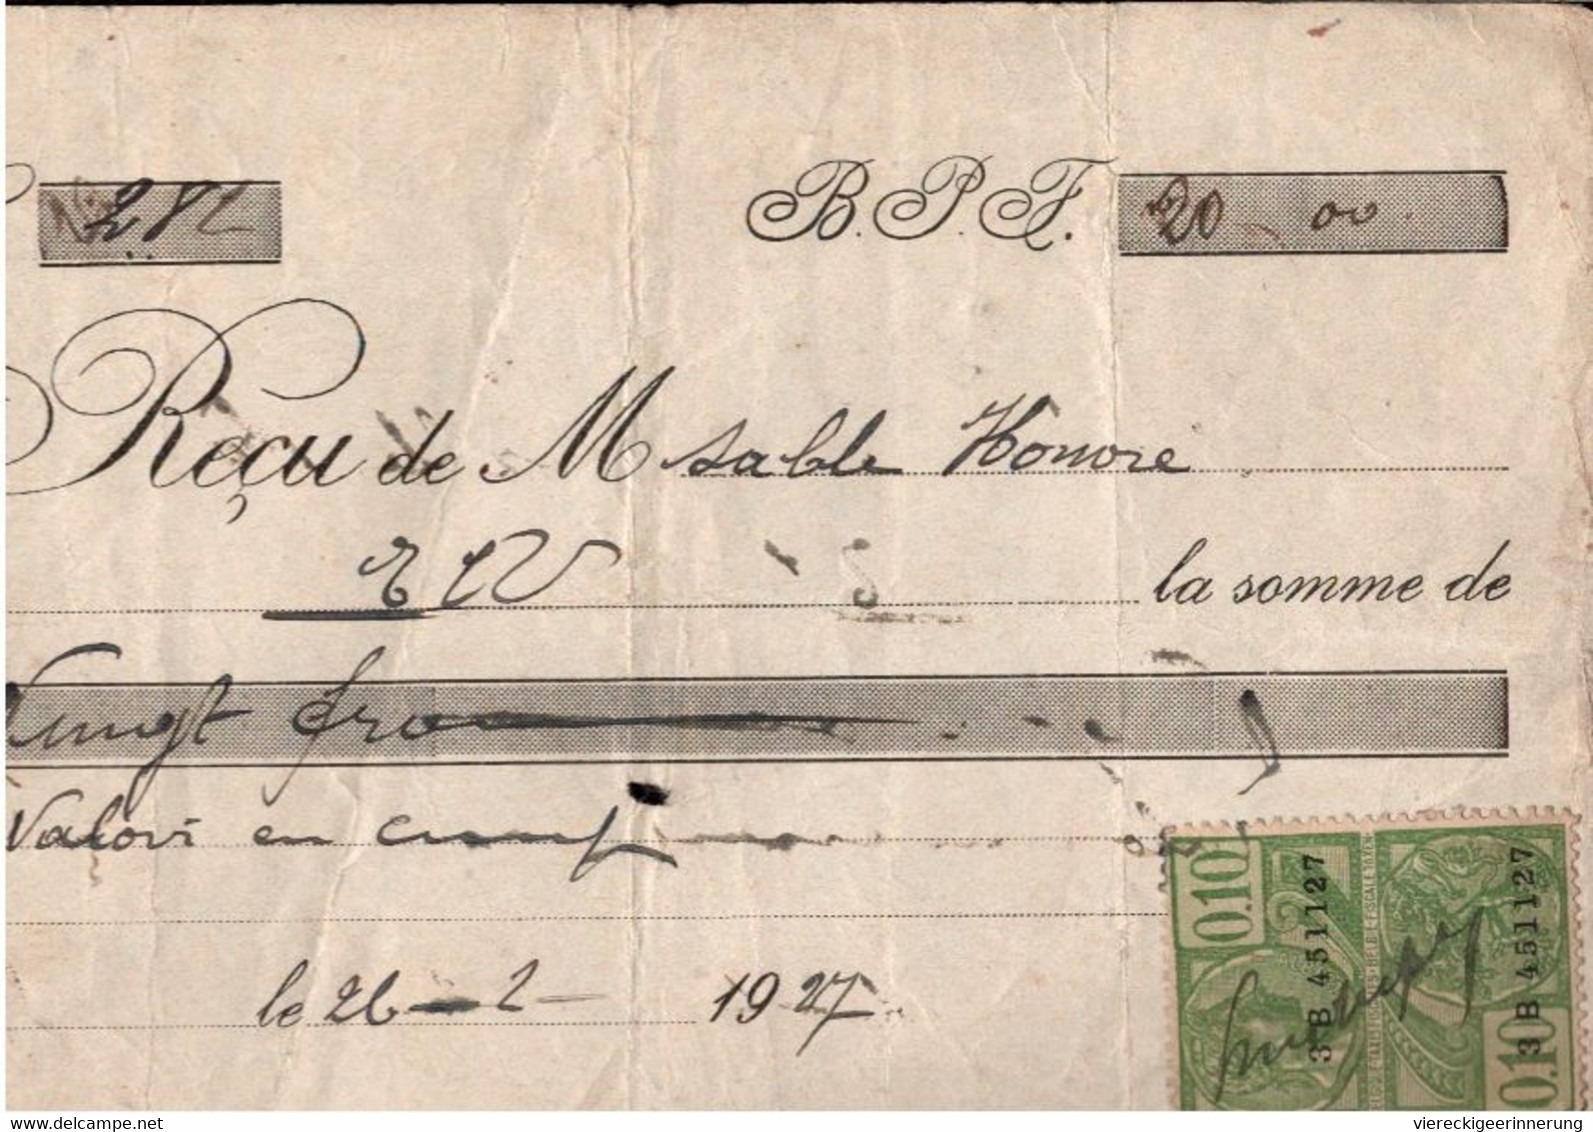 No 282 B.P.F. 20 00
Reçu de M sable Honore
EV la somme de
Vingt fra
Valovi en
le 26 - 2 - 1927
0.10 3 B 4511127 3 B 4511127 0.10
delcampe.net viereckigeerinnerung